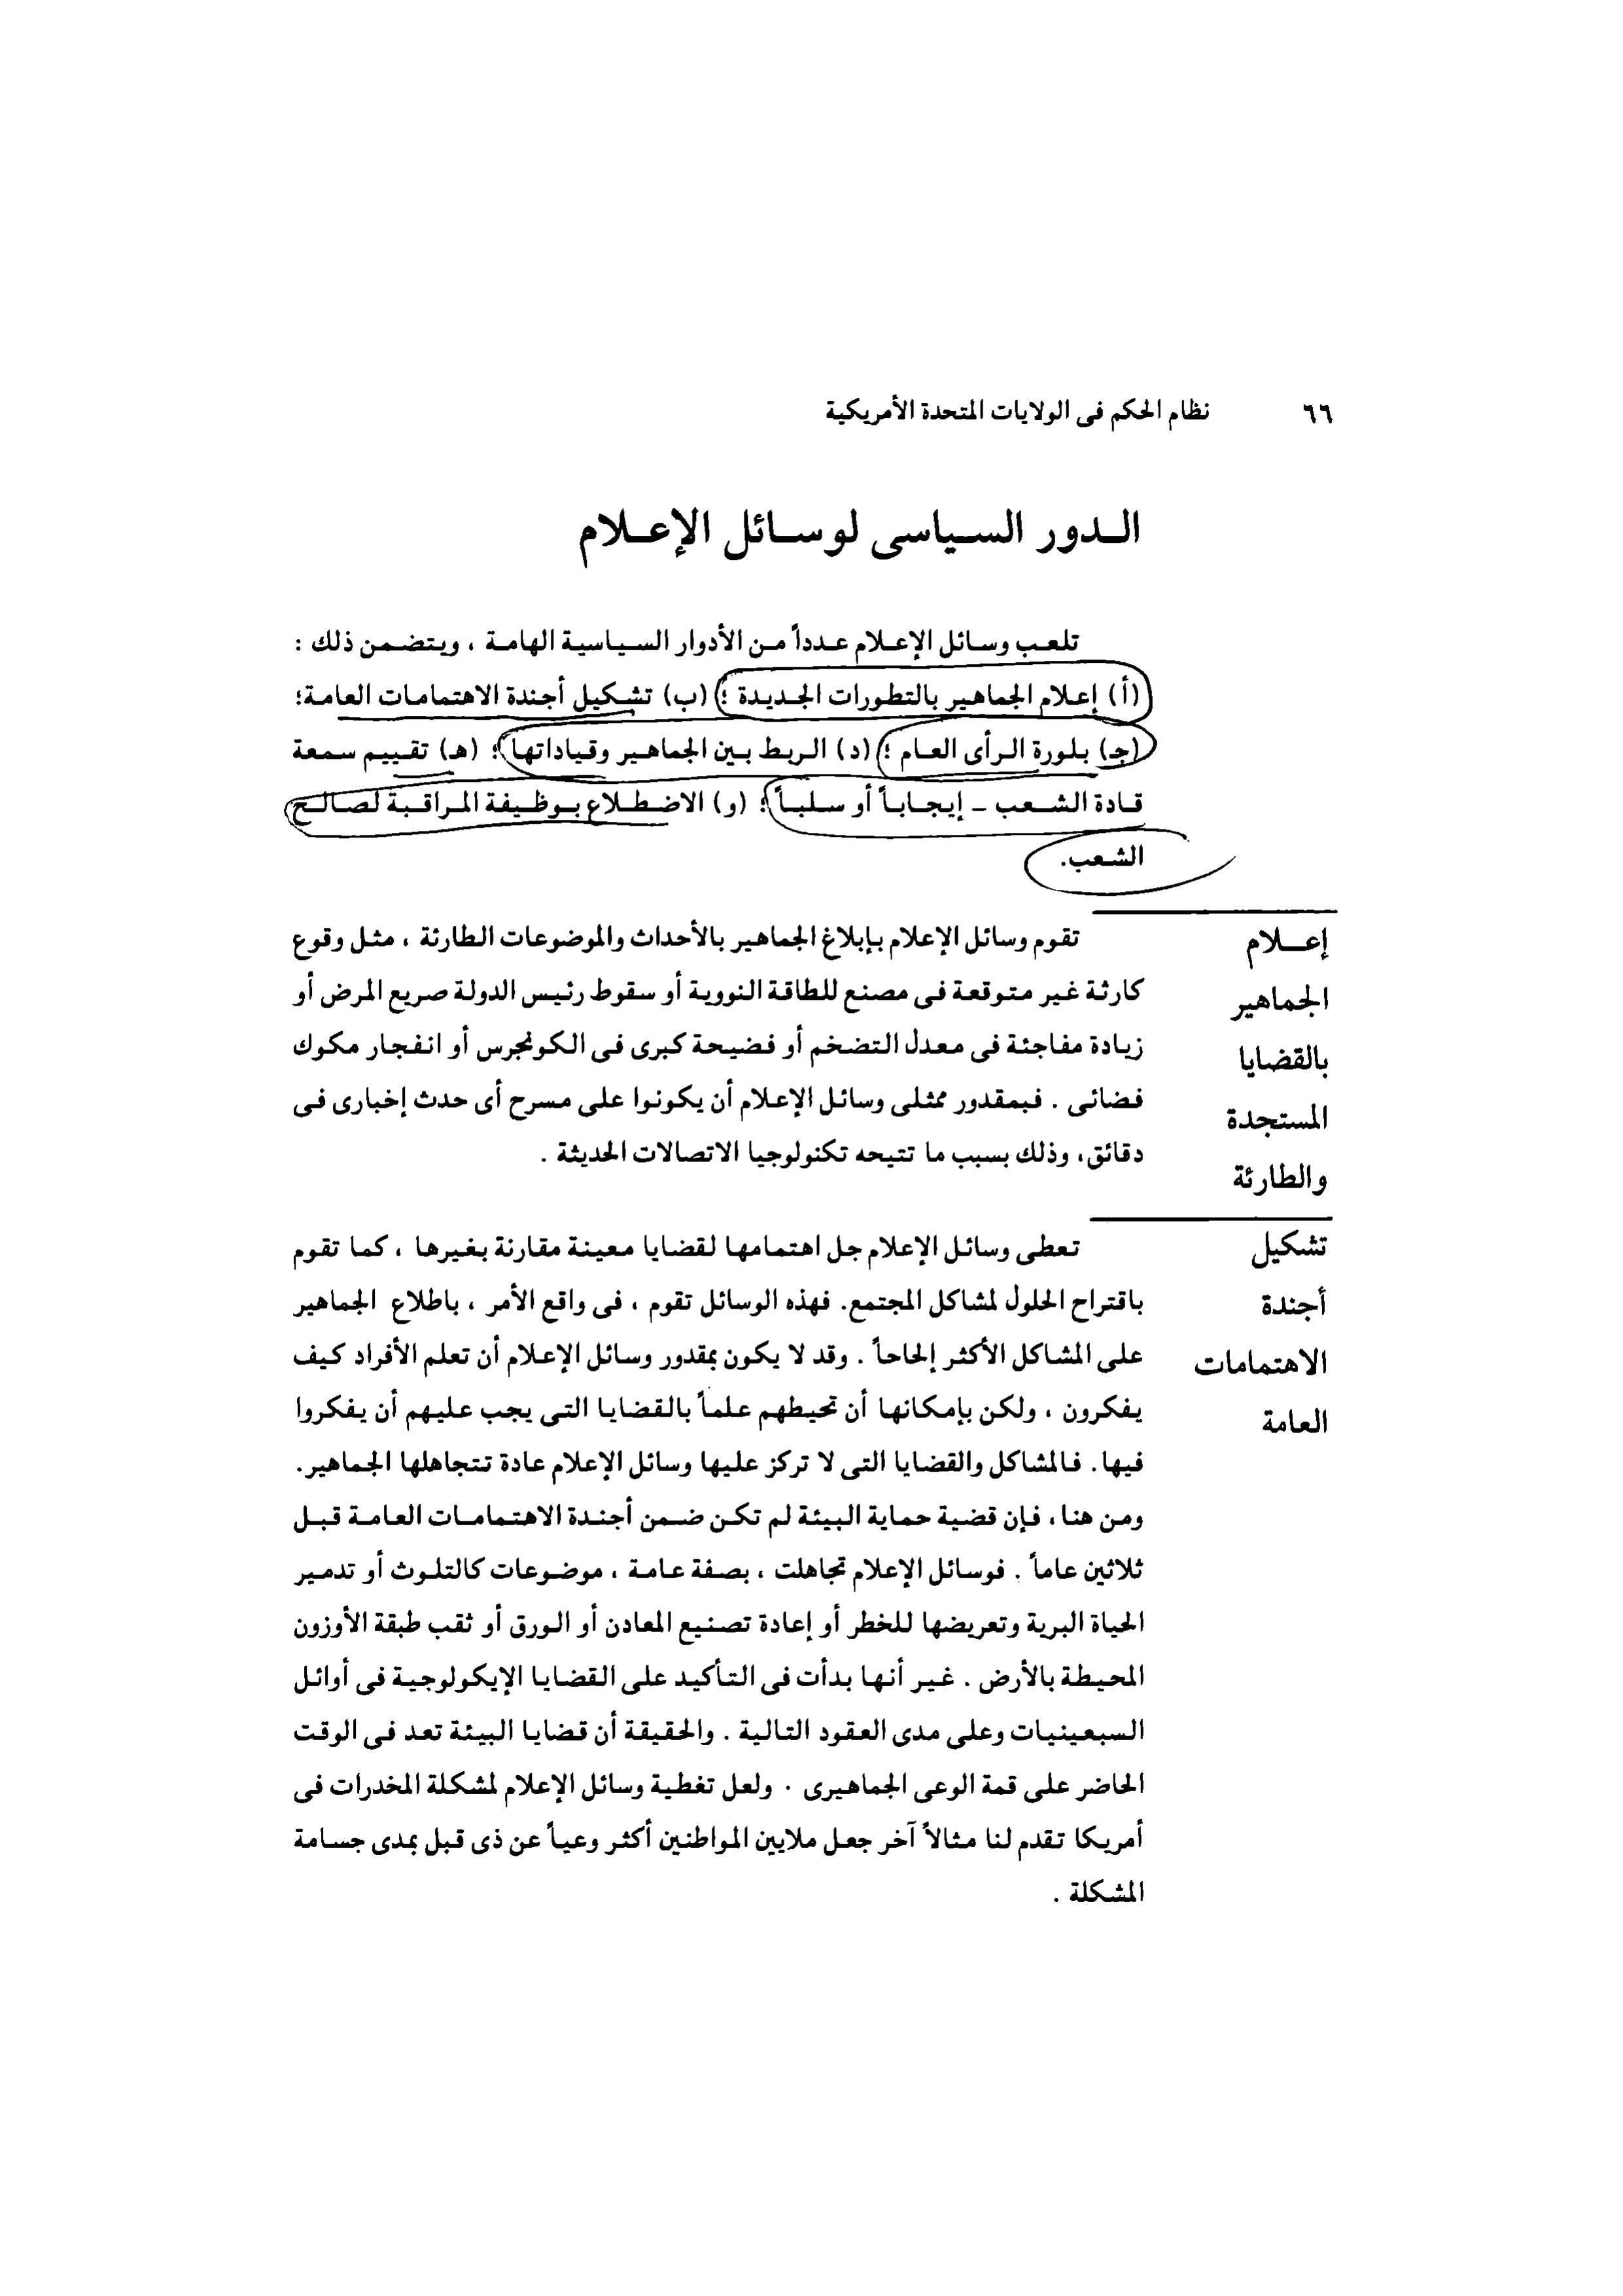 ٦٦ نظام الحكم فى الولايات المتحدة الأمريكية
الدور السياسى لوسائل الإعلام
تلعب وسائل الإعلام عدداً من الأدوار السياسية الهامة ، ويتضمن ذلك :
(أ) إعلام الجماهير بالتطورات الجديدة ؛ (ب) تشكيل أجندة الاهتمامات العامة؛
(جـ) بلورة الرأى العام ؛ (د) الربط بين الجماهير وقياداتها ؛ (هـ) تقييم سمعة
قادة الشعب – إيجاباً أو سلباً ؛ (و) الاضطلاع بوظيفة المراقبة لصالح
الشعب.
إعلام
الجماهير
بالقضايا
المستجدة
والطارئة
تقوم وسائل الإعلام بإبلاغ الجماهير بالأحداث والموضوعات الطارئة ، مثل وقوع
كارثة غير متوقعة فى مصنع للطاقة النووية أو سقوط رئيس الدولة صريع المرض أو
زيادة مفاجئة فى معدل التضخم أو فضيحة كبرى فى الكونجرس أو انفجار مكوك
فضائى . فبمقدور ممثلى وسائل الإعلام أن يكونوا على مسرح أى حدث إخبارى فى
دقائق، وذلك بسبب ما تتيحه تكنولوجيا الاتصالات الحديثة .
تشكيل
أجندة
الاهتمامات
العامة
تعطى وسائل الإعلام جل اهتمامها لقضايا معينة مقارنة بغيرها ، كما تقوم
باقتراح الحلول لمشاكل المجتمع. فهذه الوسائل تقوم ، فى واقع الأمر ، باطلاع الجماهير
على المشاكل الأكثر إلحاحاً . وقد لا يكون بمقدور وسائل الإعلام أن تعلم الأفراد كيف
يفكرون ، ولكن بإمكانها أن تحيطهم علماً بالقضايا التى يجب عليهم أن يفكروا
فيها. فالمشاكل والقضايا التى لا تركز عليها وسائل الإعلام عادة تتجاهلها الجماهير.
ومن هنا، فإن قضية حماية البيئة لم تكن ضمن أجندة الاهتمامات العامة قبل
ثلاثين عاماً . فوسائل الإعلام تجاهلت ، بصفة عامة ، موضوعات كالتلوث أو تدمير
الحياة البرية وتعريضها للخطر أو إعادة تصنيع المعادن أو الورق أو ثقب طبقة الأوزون
المحيطة بالأرض . غير أنها بدأت فى التأكيد على القضايا الإيكولوجية فى أوائل
السبعينيات وعلى مدى العقود التالية . والحقيقة أن قضايا البيئة تعد فى الوقت
الحاضر على قمة الوعى الجماهيرى . ولعل تغطية وسائل الإعلام لمشكلة المخدرات فى
أمريكا تقدم لنا مثالاً آخر جعل ملايين المواطنين أكثر وعياً عن ذى قبل بمدى جسامة
المشكلة .